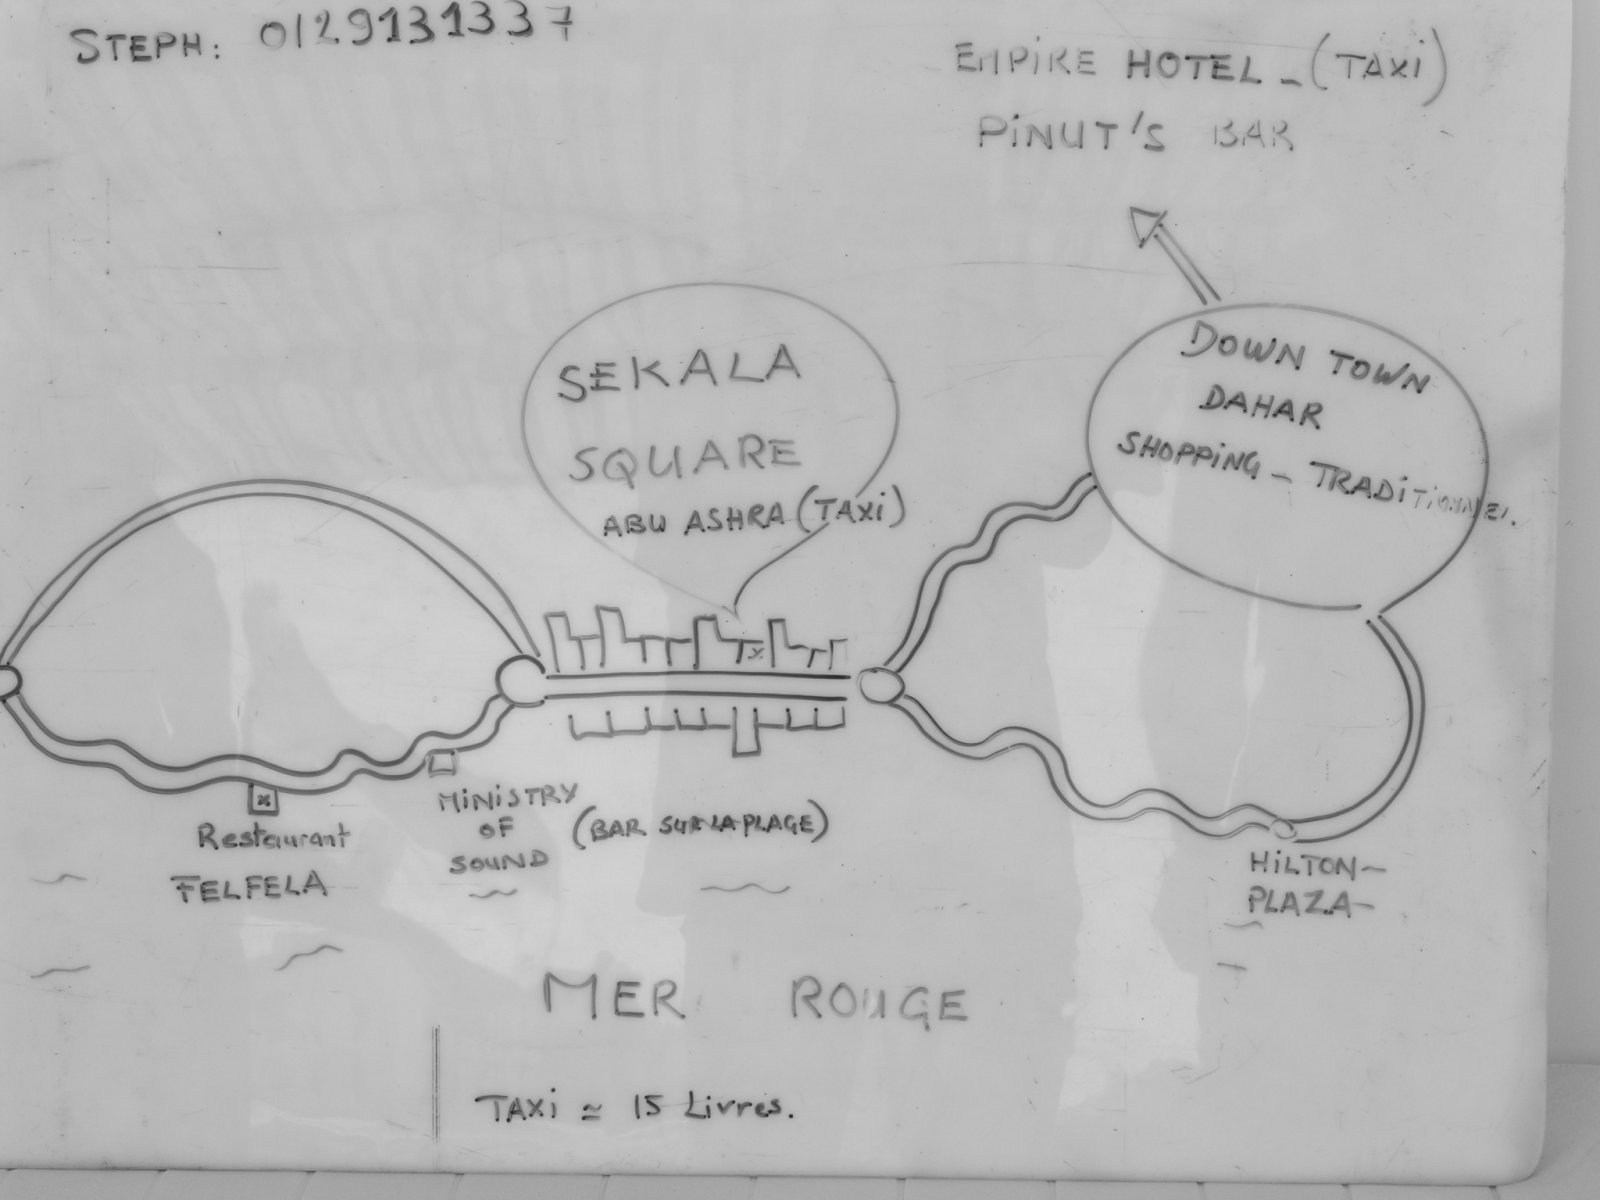 STEPH: 0129131337
EMPiRE HOTEL - (TAXi)
PiNUT'S BAR
SEKALA
SQUARE
ABU ASHRA (TAXi)
DOWN TOWN
DAHAR
SHOPPiNG - TRADiTiONNEL.
Restaurant
FELFELA
MiNiSTRY
OF
SOUND
(BAR SUR LA PLAGE)
HiLTON-
PLAZA-
MER ROUGE
TAXi ≃ 15 Livres.